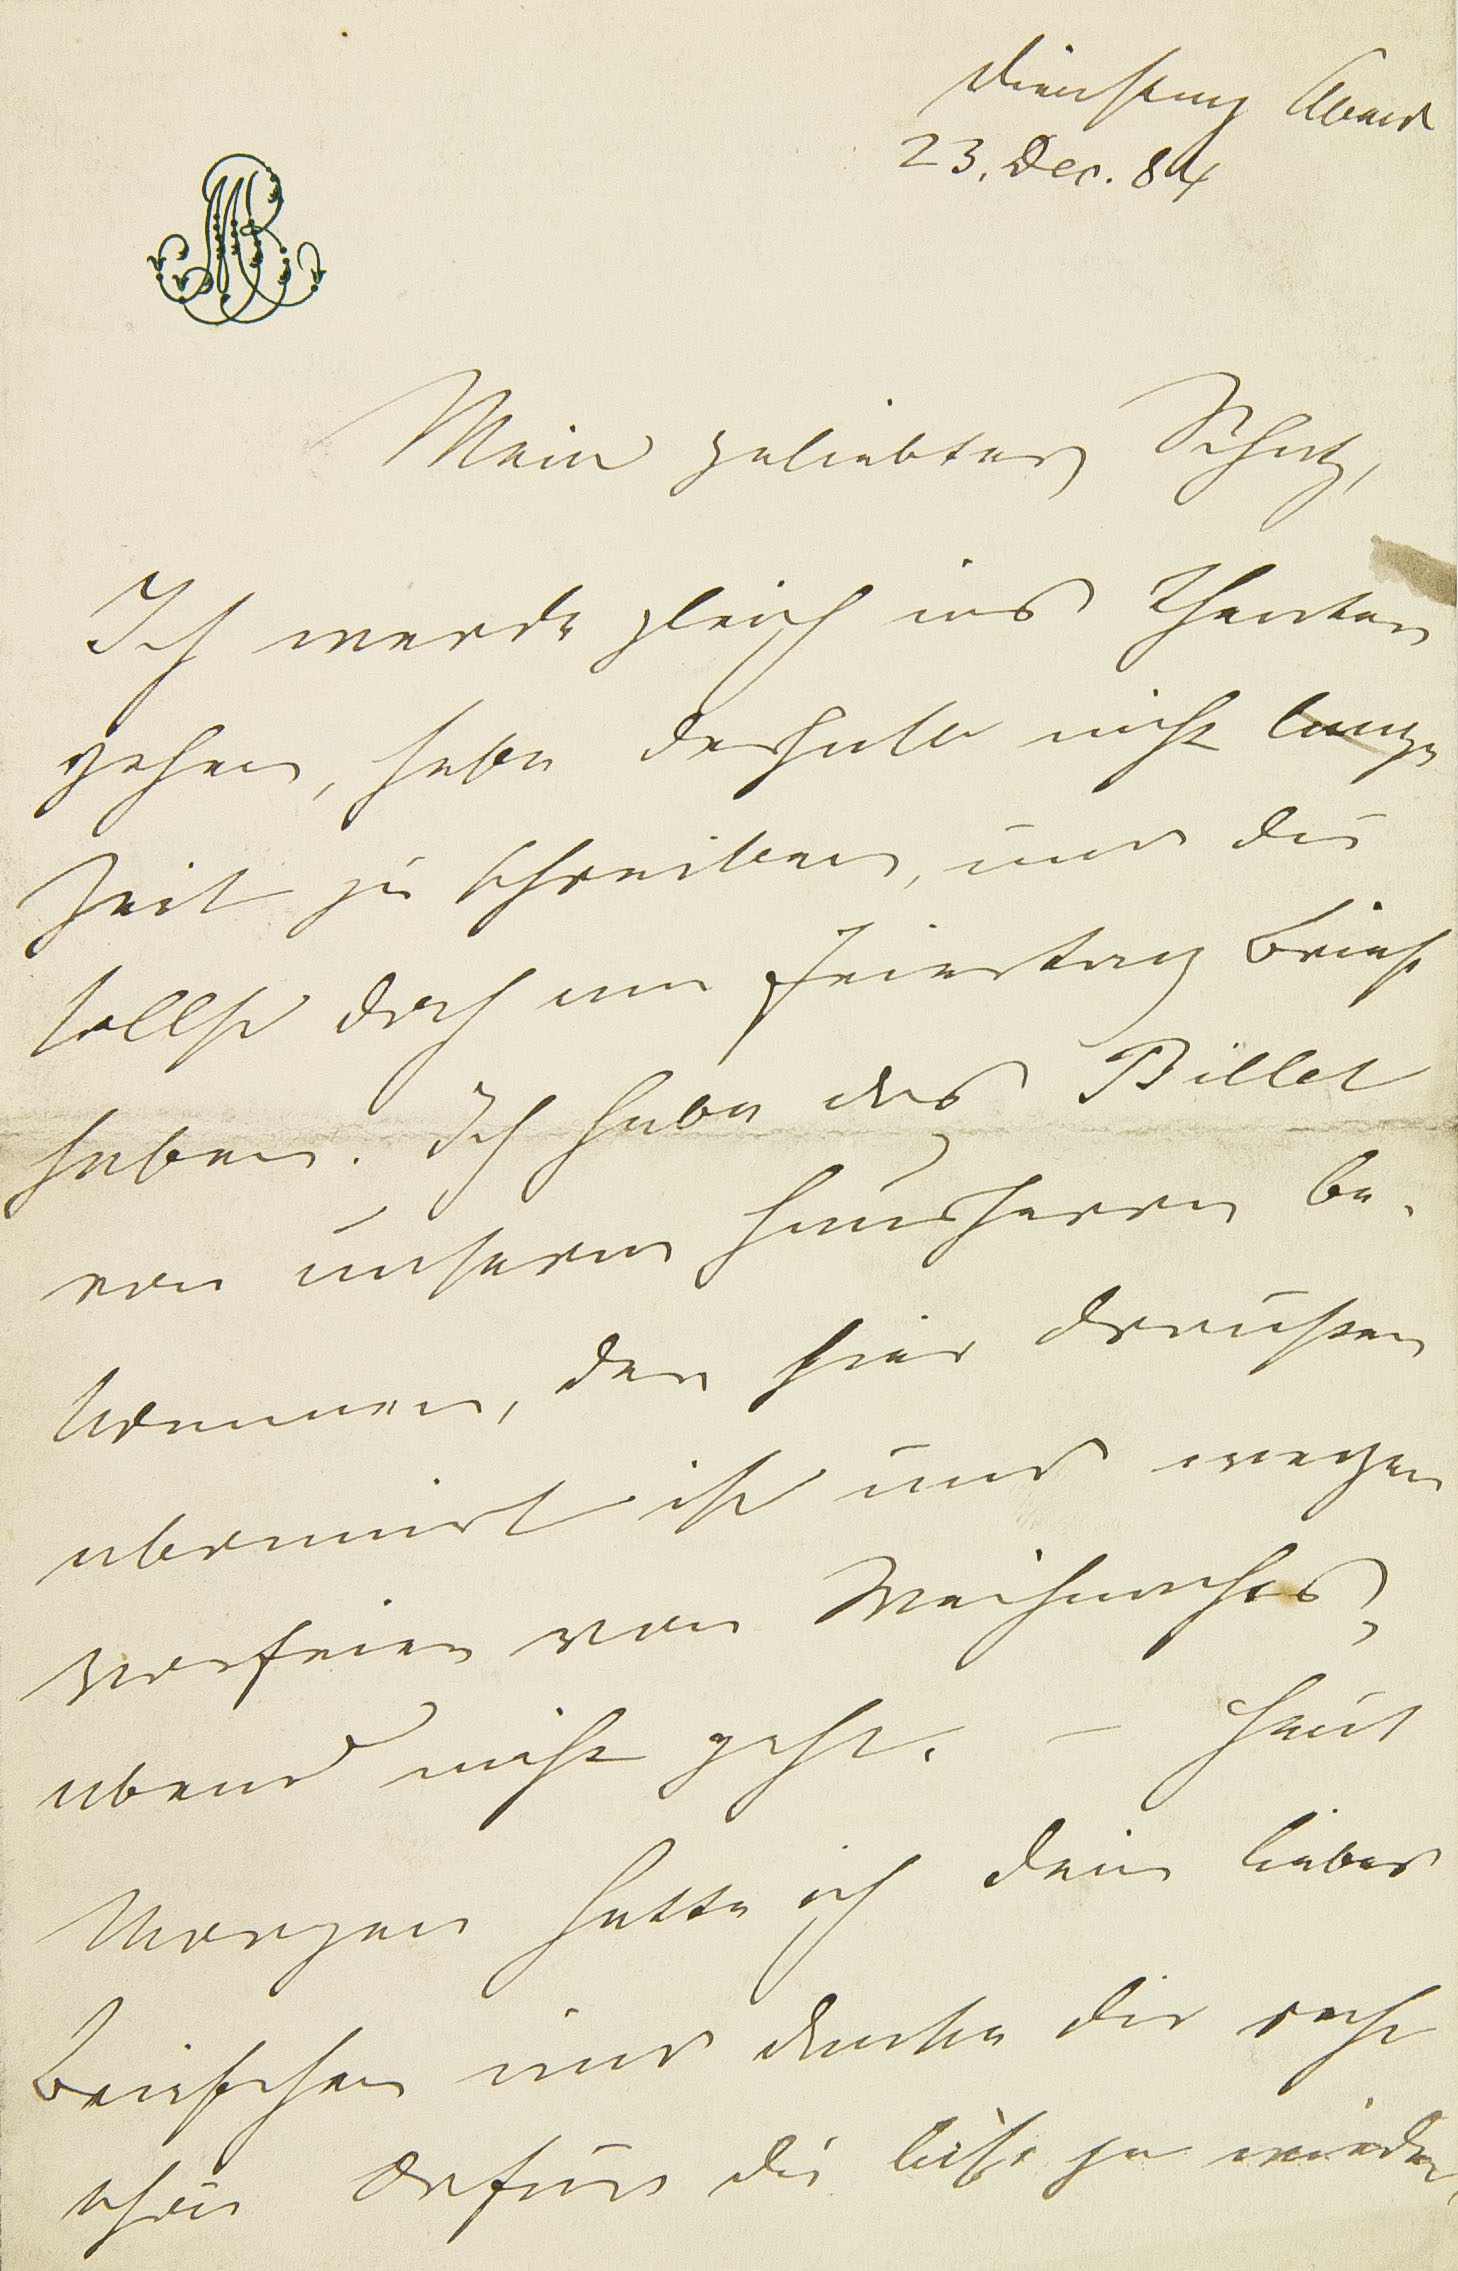 Dienstag Abend
23. Dec. 84
MB
Mein geliebter Schatz,
Ich werde gleich ins Theater
gehen, habe deshalb nicht lange
Zeit zu schreiben, und du
sollst doch am Feiertag Brief
haben. Ich habe das Billet
von unserm Hausherrn be-
kommen, der hier draußen
abonnirt ist und wegen
Vorfeier von Weihnachts-
abend nicht geht. – Heut
Morgen hatte ich dein liebes
Briefchen und danke dir recht
schön dafür du bist ja wieder